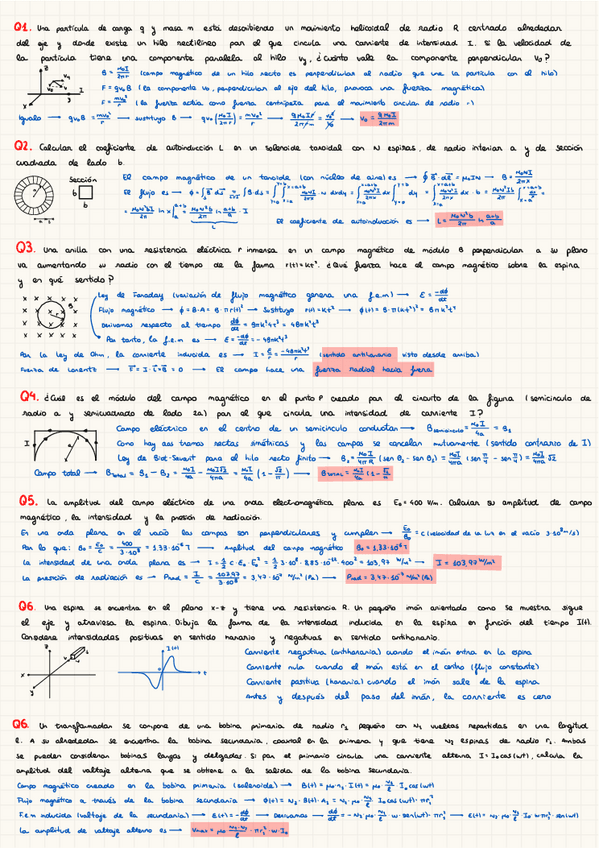 Q1. Una partícula de carga q y masa m está describiendo un movimiento helicoidal de radio R centrado alrededor
del eje y donde existe un hilo rectilíneo por el que circula una corriente de intensidad I. Si la velocidad de
la partícula tiene una componente paralela al hilo vy, ¿cuánto vale la componente perpendicular v₀?
B = μ₀I/2πr (campo magnético de un hilo recto es perpendicular al radio que une la partícula con el hilo)
F = qv₀B (la componente v₀, perpendicular al eje del hilo, provoca una fuerza magnética)
F = mv₀²/r (la fuerza actúa como fuerza centrípeta para el movimiento circular de radio r)
Igualo → qv₀B = mv₀²/r → sustituyo B → qv₀(μ₀I/2πr) = mv₀²/r → v₀ = qμ₀I/2πm
Q2. Calcular el coeficiente de autoinducción L en un solenoide toroidal con N espiras, de radio interior a y de sección
cuadrada de lado b.
Sección
b
b
El campo magnético de un toroide (con núcleo de aire) es → ∮B·dl = μ₀IN → B = μ₀NI/2πx
El coeficiente de autoinducción es → L = μ₀N²b/2π ln (a+b)/a
Q3. Una anilla con una resistencia eléctrica r inmersa en un campo magnético de módulo B perpendicular a su plano
va aumentando su radio con el tiempo de la forma r(t)=kt². ¿Qué fuerza hace el campo magnético sobre la espira
y en qué sentido?
Ley de Faraday (variación de flujo magnético genera una f.e.m) → ε = -dφ/dt
Flujo magnético → φ = B·A = B·πr(t)² → Sustituyo r(t)=kt² → φ(t) = B·π(kt²)² = Bπk²t⁴
Derivamos respecto al tiempo dφ/dt = Bπk²4t³ = 4Bπk²t³
Por tanto, la f.e.m es → ε = -dφ/dt = -4Bπk²t³
Por la ley de Ohm, la corriente inducida es → I = ε/r = -4Bπk²t³/r (sentido antihorario visto desde arriba)
Fuerza de Lorentz → F = I·L×B = 0 → El campo hace una fuerza radial hacia fuera
Q4. ¿Cuál es el módulo del campo magnético en el punto P creado por el circuito de la figura (semicírculo de
radio a y semicuadrado de lado 2a) por el que circula una intensidad de corriente I?
Campo eléctrico en el centro de un semicírculo conductor → Bsemicírculo = μ₀I/4a = B₁
Como hay dos tramos rectos simétricos y los campos se cancelan mutuamente (sentido contrario de I)
Campo total → Btotal = B₁ - B₂ = μ₀I/4a - μ₀I√2/4πa = μ₀I/4a (1 - √2/π) → Btotal = μ₀I/4a (1 - √2/π)
Q5. La amplitud del campo eléctrico de una onda electromagnética plana es E₀ = 400 V/m. Calcular su amplitud de campo
magnético, la intensidad y la presión de radiación.
En una onda plana en el vacío los campos son perpendiculares y cumplen → E₀/B₀ = c (velocidad de la luz en el vacío 3·10⁸ m/s)
Por lo que: B₀ = E₀/c = 400/3·10⁸ = 1,33·10⁻⁶ T → Amplitud del campo magnético B₀ = 1,33·10⁻⁶ T
La intensidad de una onda plana es → I = 1/2 c·ε₀·E₀² = 1/2 3·10⁸·8,85·10⁻¹²·400² = 103,97 W/m² → I = 103,97 W/m²
Q6. Una espira se encuentra en el plano x-z y tiene una resistencia R. Un pequeño imán orientado como se muestra sigue
el eje y atraviesa la espira. Dibuja la forma de la intensidad inducida en la espira en función del tiempo I(t).
Considere intensidades positivas en sentido horario y negativas en sentido antihorario.
Corriente negativa (antihoraria) cuando el imán entra en la espira
Corriente nula cuando el imán está en el centro (flujo constante)
Corriente positiva (horaria) cuando el imán sale de la espira
Antes y después del paso del imán, la corriente es cero
Q6. Un transformador se compone de una bobina primaria de radio r₁ pequeño con N₁ vueltas repartidas en una longitud
l. A su alrededor se encuentra la bobina secundaria, coaxial con la primera y que tiene N₂ espiras de radio r₂. Ambas
se pueden considerar bobinas largas y delgadas. Si por el primario circula una corriente alterna I = I₀cos(wt), calcula la
amplitud del voltaje alterno que se obtiene a la salida de la bobina secundaria.
Campo magnético creado en la bobina primaria (solenoide) → B(t) = μ₀·n₁·I(t) = μ₀·N₁/l I₀cos(wt)
Flujo magnético a través de la bobina secundaria → φ(t) = N₂·B(t)·A₁ = N₂·μ₀·N₁/l I₀cos(wt)·πr₁²
F.e.m inducida (voltaje de la secundaria) → ε(t) = -dφ/dt → Derivamos → dφ/dt = -N₂·μ₀·N₁/l I₀ w·sen(wt)·πr₁² → ε(t) = N₂·μ₀·N₁/l I₀·w·πr₁²·sen(wt)
La amplitud de voltaje alterno es → Vmax = μ₀ N₁·N₂/l ·πr₁²·w·I₀